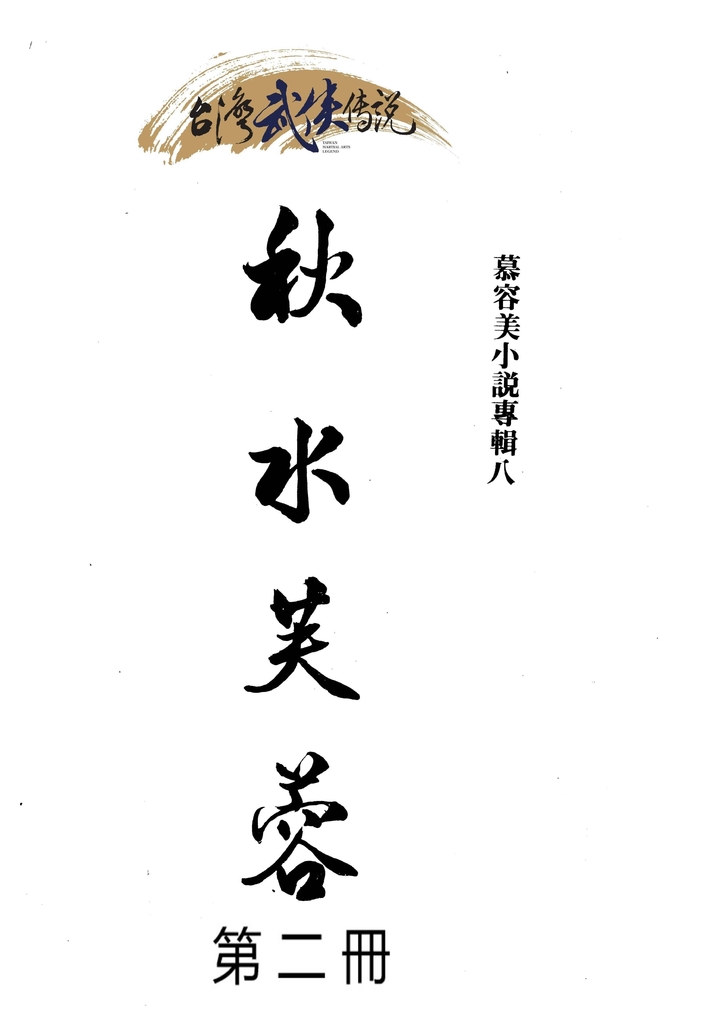 台灣武侠传説
TAIWAN
MARTIAL ARTS
LEGEND
慕容美小説專輯八
秋水芙蓉
第二冊